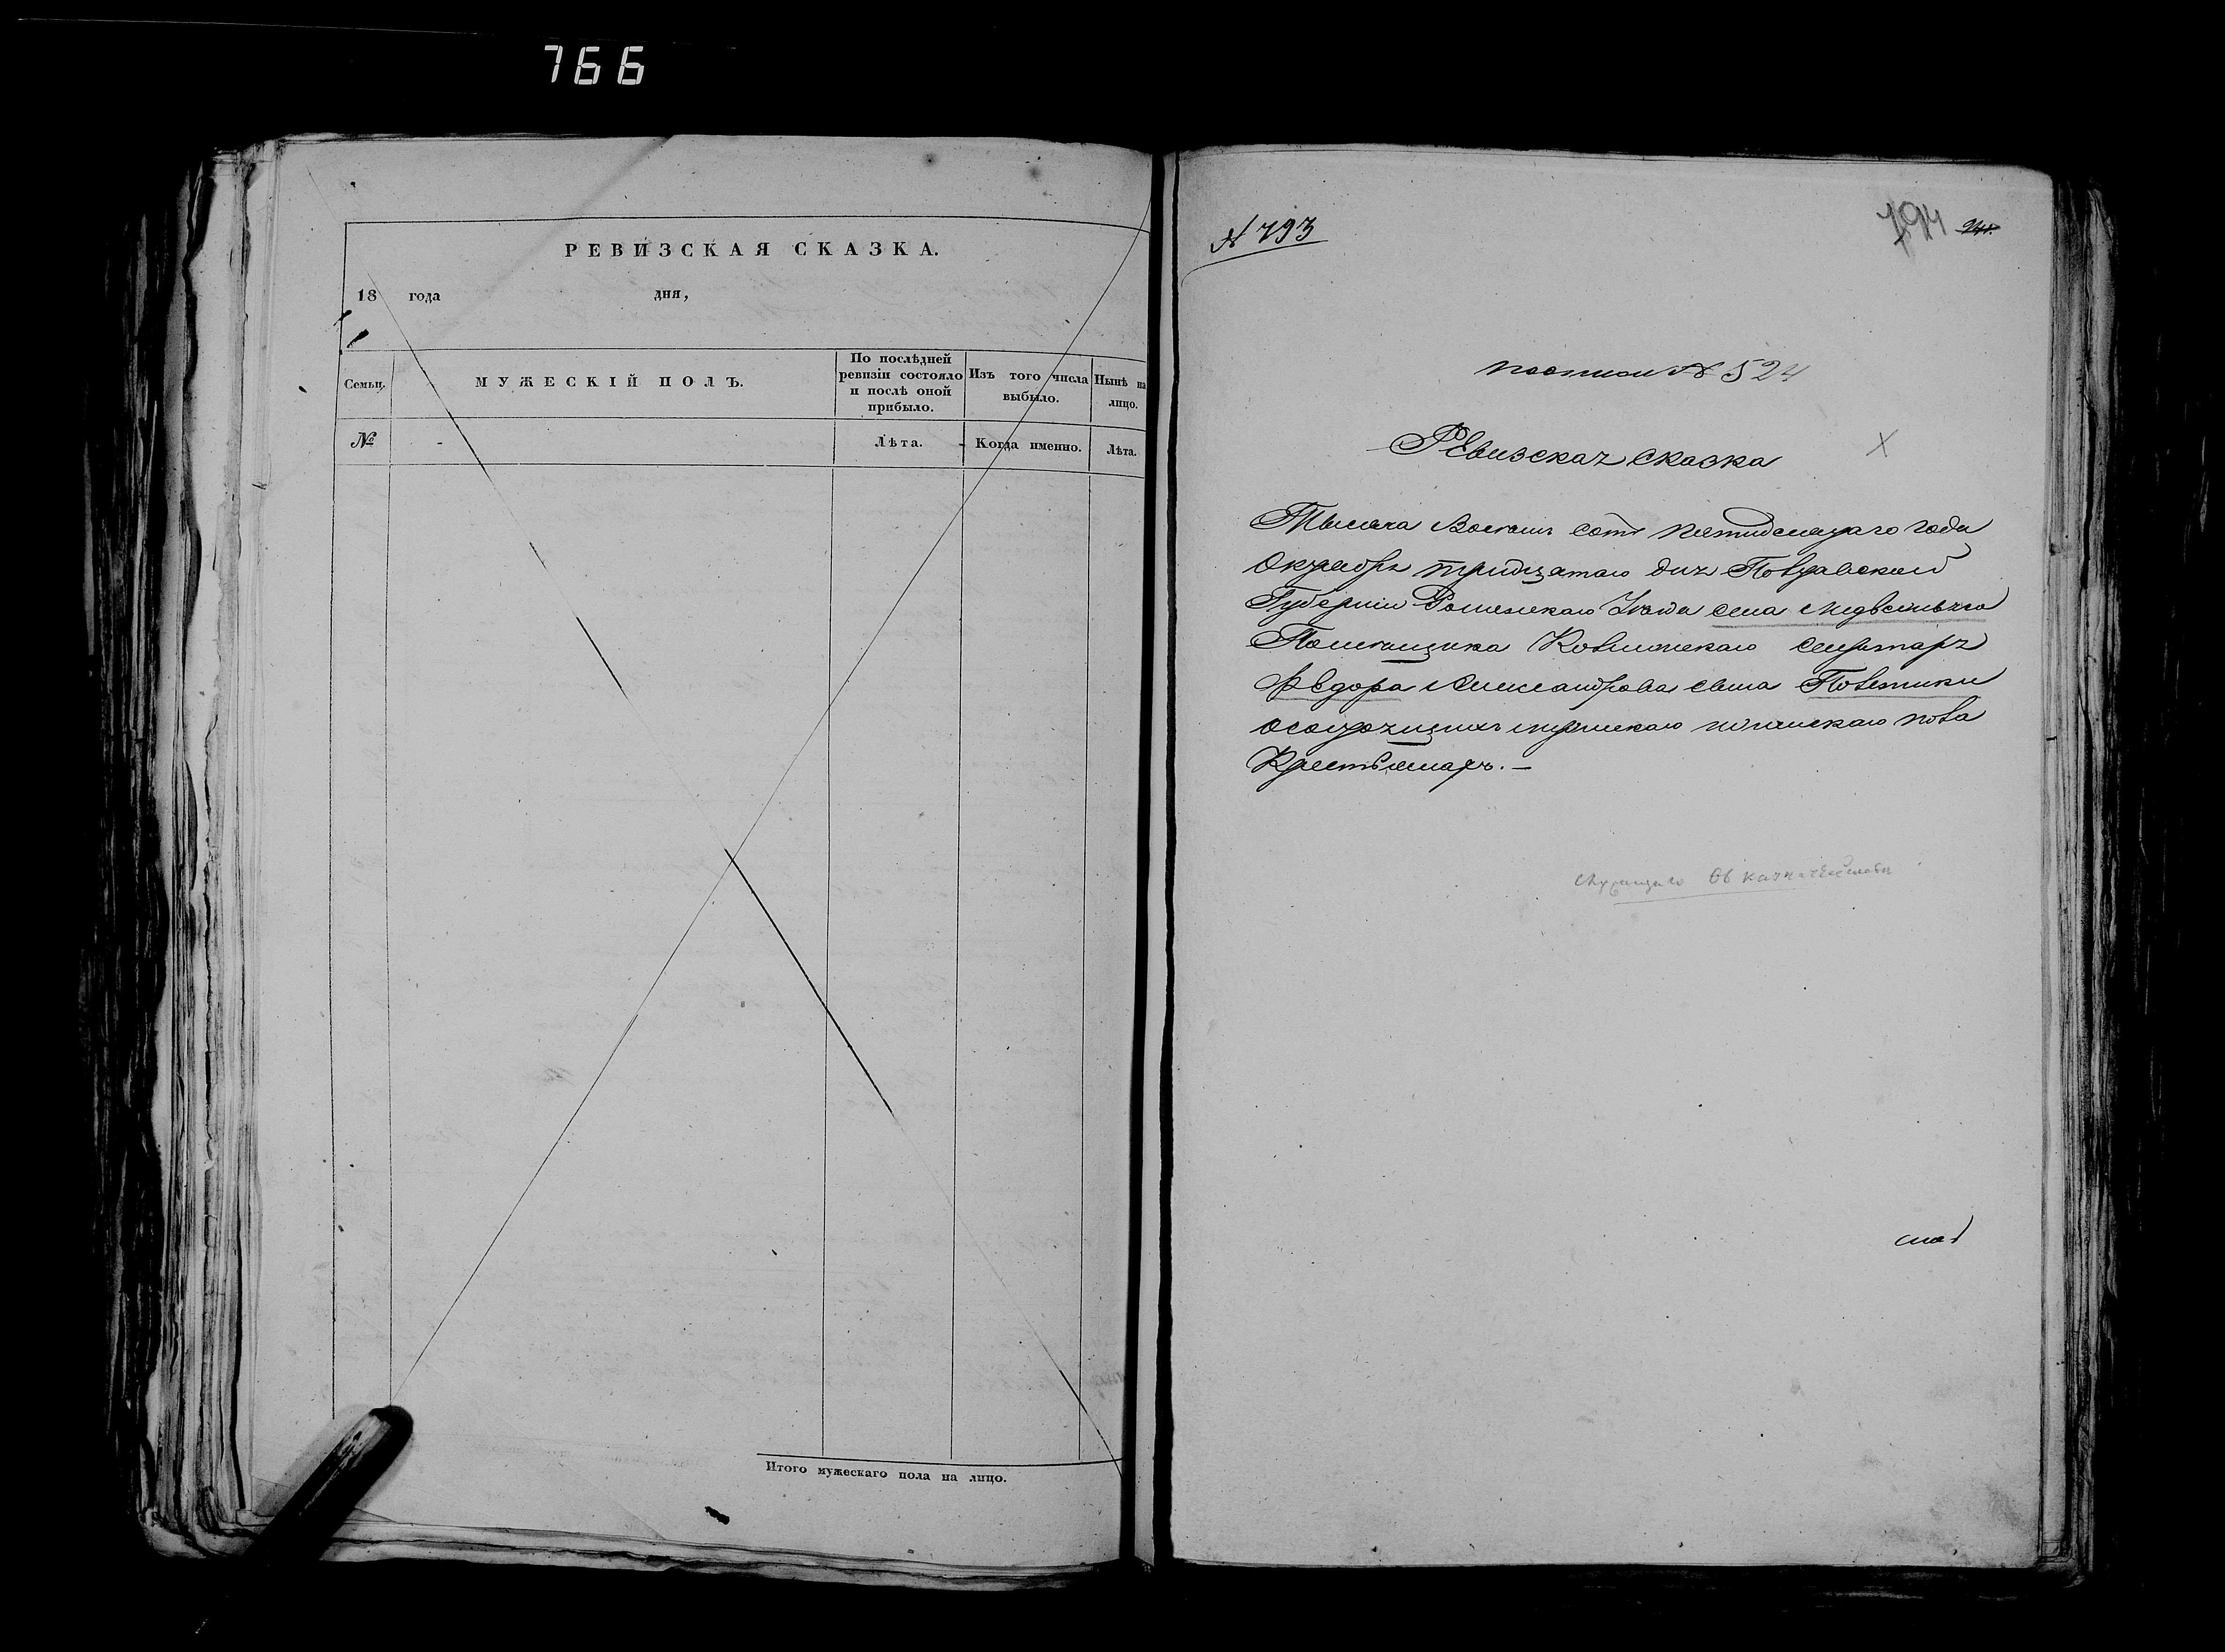 766
РЕВИЗСКАЯ СКАЗКА.
18 года дня,
Семьи.
МУЖЕСКІЙ ПОЛЪ.
По послѣдней ревизіи состояло и послѣ оной прибыло.
Изъ того числа выбыло.
Нынѣ на лицо.
№
Лѣта.
Когда именно.
Лѣта.
Итого мужескаго пола на лицо.
№ 793
194
№ 524
Ревизская сказка
Тысяча Восемь сотъ пятидесятаго года
Октября тридцатаго дня Полтавской
Губерніи Роменскаго Уезда села
Помещика Секретаря
Федора Александрова сына Полетики
о состоящихъ мужескаго и женскаго пола
Крестьянахъ. —